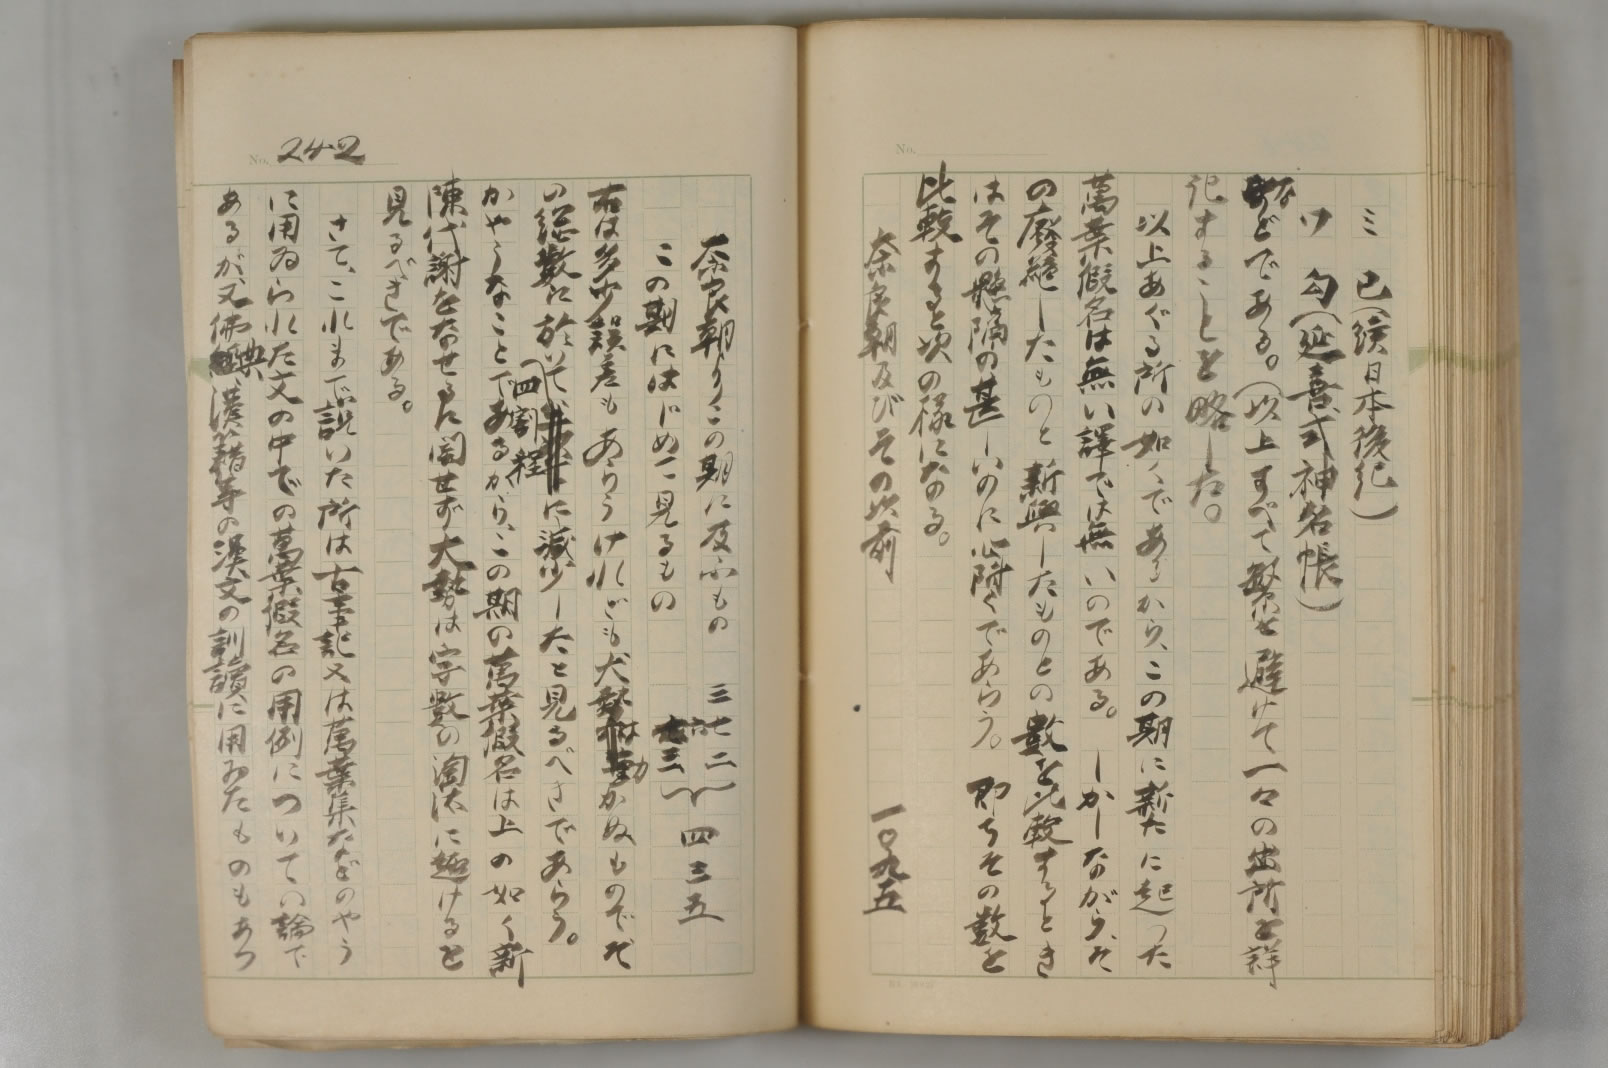 ミ 已(續日本後紀)
ワ 勾(延喜式神名帳)
などである。(以上すべて繁を避けて一々の出所を詳
記することを略した。)
以上あぐる所の如くであるから、この期に新たに起つた
萬葉假名は無い譯では無いのである。しかしながら、そ
の廢絶したものと新興したものとの數を比較するとき
はその懸隔の甚しいのに心附くであらう。即ちその數を
比較すると次の樣になる。
奈良朝及びその以前 一〇九五
No. 242
奈良朝よりこの期に及ぶもの 三七二
この期にはじめて見るもの 六三 四三五
右は多少誤差もあらうけれども大勢は動かぬものでそ
の總數に於いて四割程に減少したと見るべきであらう。
かやうなことであるから、この期の萬葉假名は上の如く新
陳代謝をなせるに關せず大勢は字數の淘汰に趣けると
見るべきである。
さて、これまで説いた所は古事記又は萬葉集などのやう
に用ゐられた文の中での萬葉假名の用例についての論で
あるが、又佛典、漢籍等の漢文の訓讀に用ゐたものもあつ
No.